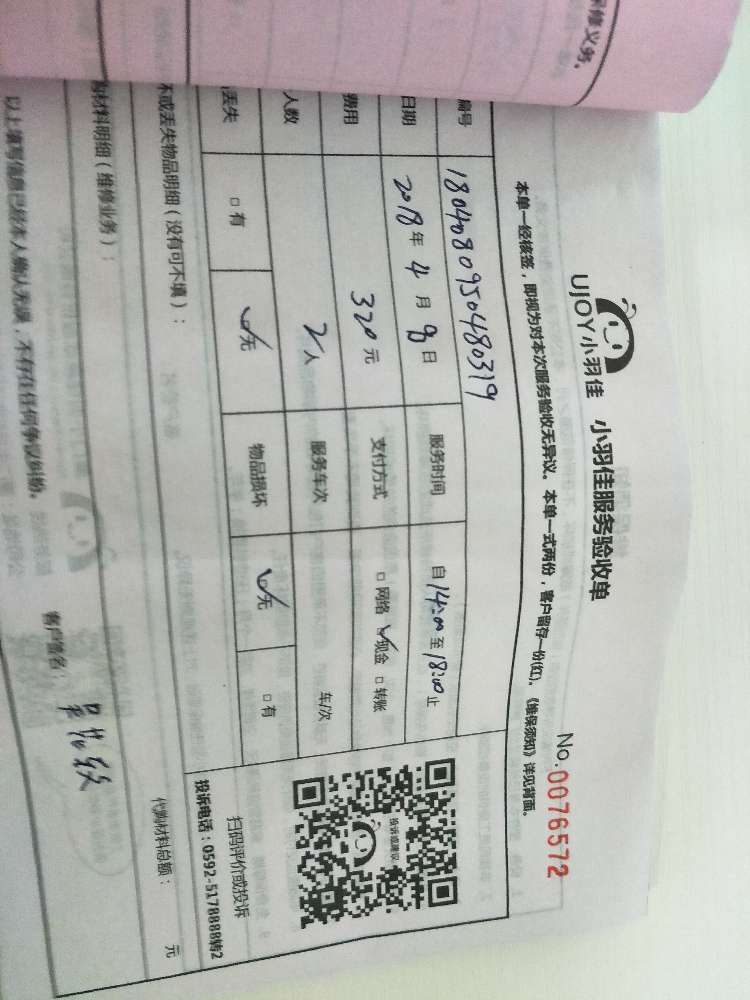 保修义务。
UJOY小羽佳 小羽佳服务验收单
No.0076572
本单一经核签，即视为对本次服务验收无异议。本单一式两份，客户留存一份(红)。《维保须知》详见背面。
编号 180408095048031９
日期 2018年4月8日 服务时间 自14:00至18:00止
费用 320元 支付方式 □网络 ☑现金 □转账
人数 2人 服务车次 车/次
丢失 □有 ☑无 物品损坏 ☑无 □有
投诉或建议
扫码评价或投诉
投诉电话：0592-5178888转2
坏或丢失物品明细（没有可不填）：
购材料明细（维修业务）： 代购材料总额： 元
以上填写信息已经本人确认无误，不存在任何争议纠纷。 客户签名：